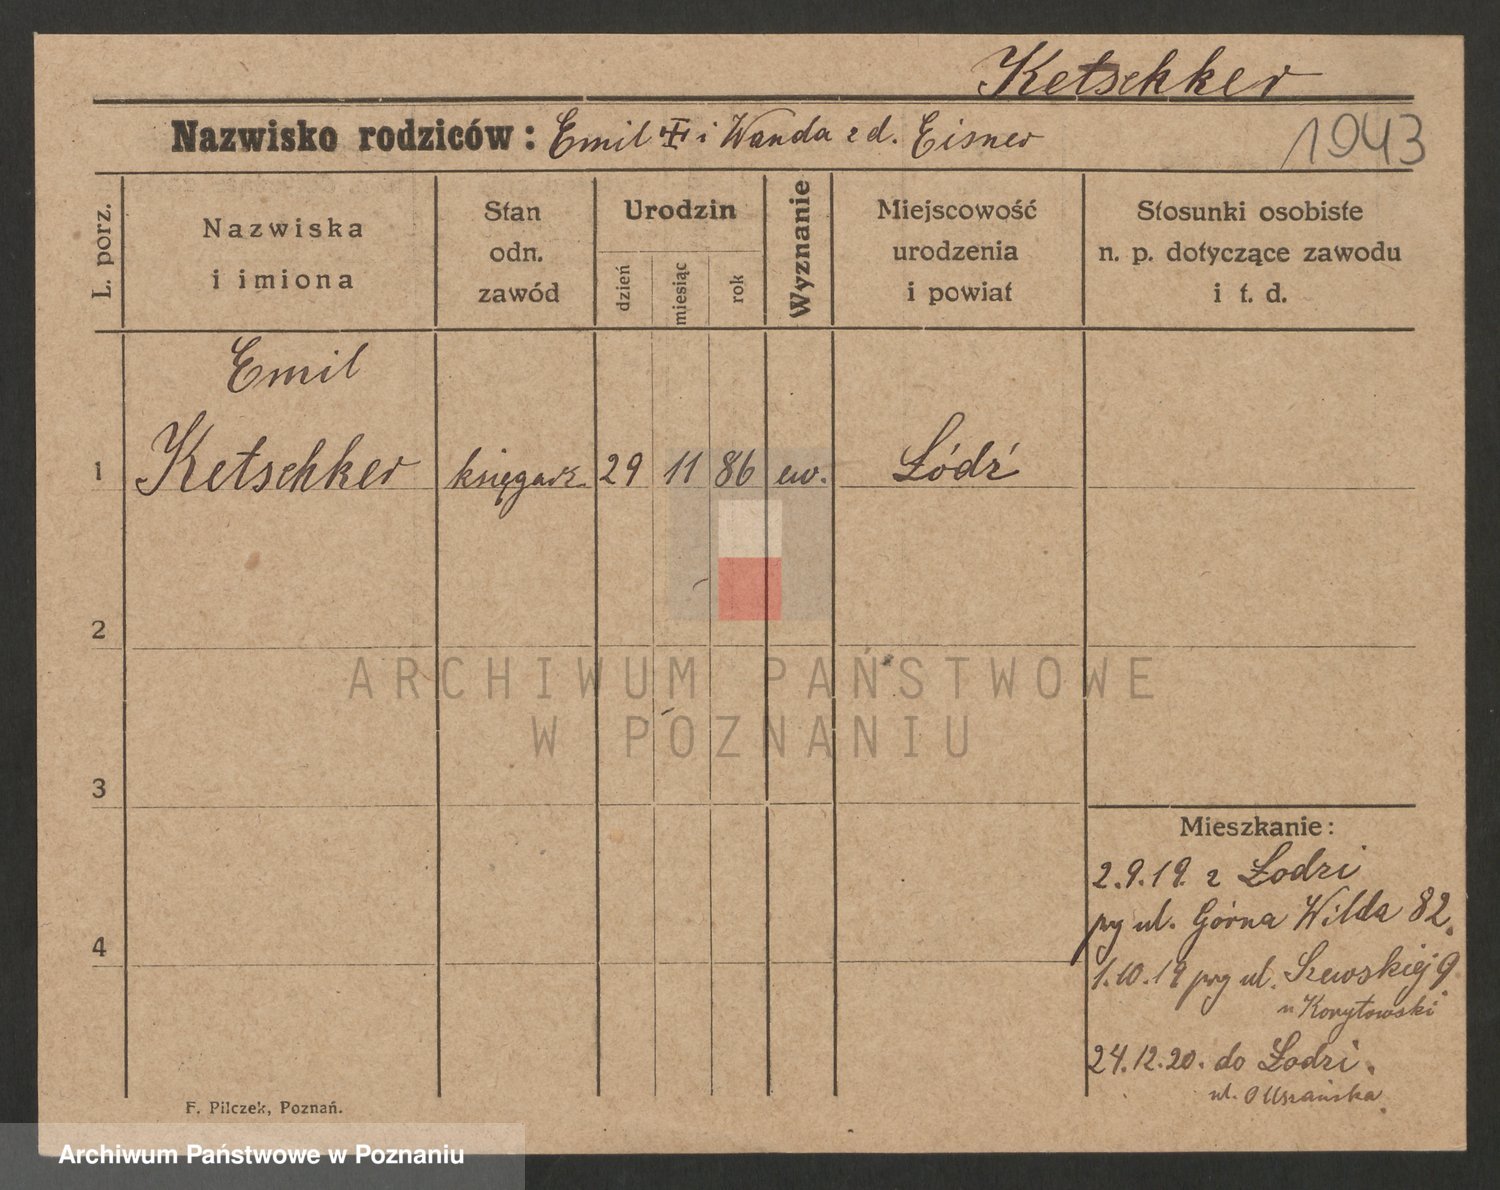 Ketschker
Nazwisko rodziców: Emil ‡ i Wanda z d. Eisner
1943
L. porz.
Nazwiska
i imiona
Stan
odn.
zawód
Urodzin
dzień
miesiąc
rok
Wyznanie
Miejscowość
urodzenia
i powiat
Stosunki osobiste
n. p. dotyczące zawodu
i t. d.
Emil
1 Ketschker księgarz. 29 11 86 ew. Łódź
2
3
4
ARCHIWUM PAŃSTWOWE
W POZNANIU
Mieszkanie:
2.9.19. z Łodzi
pry ul. Górna Wilda 82.
1.10.19 pry ul. Szewskiej 9
u Korytowski
24.12.20. do Łodzi.
ul.
F. Pilczek, Poznań.
Archiwum Państwowe w Poznaniu